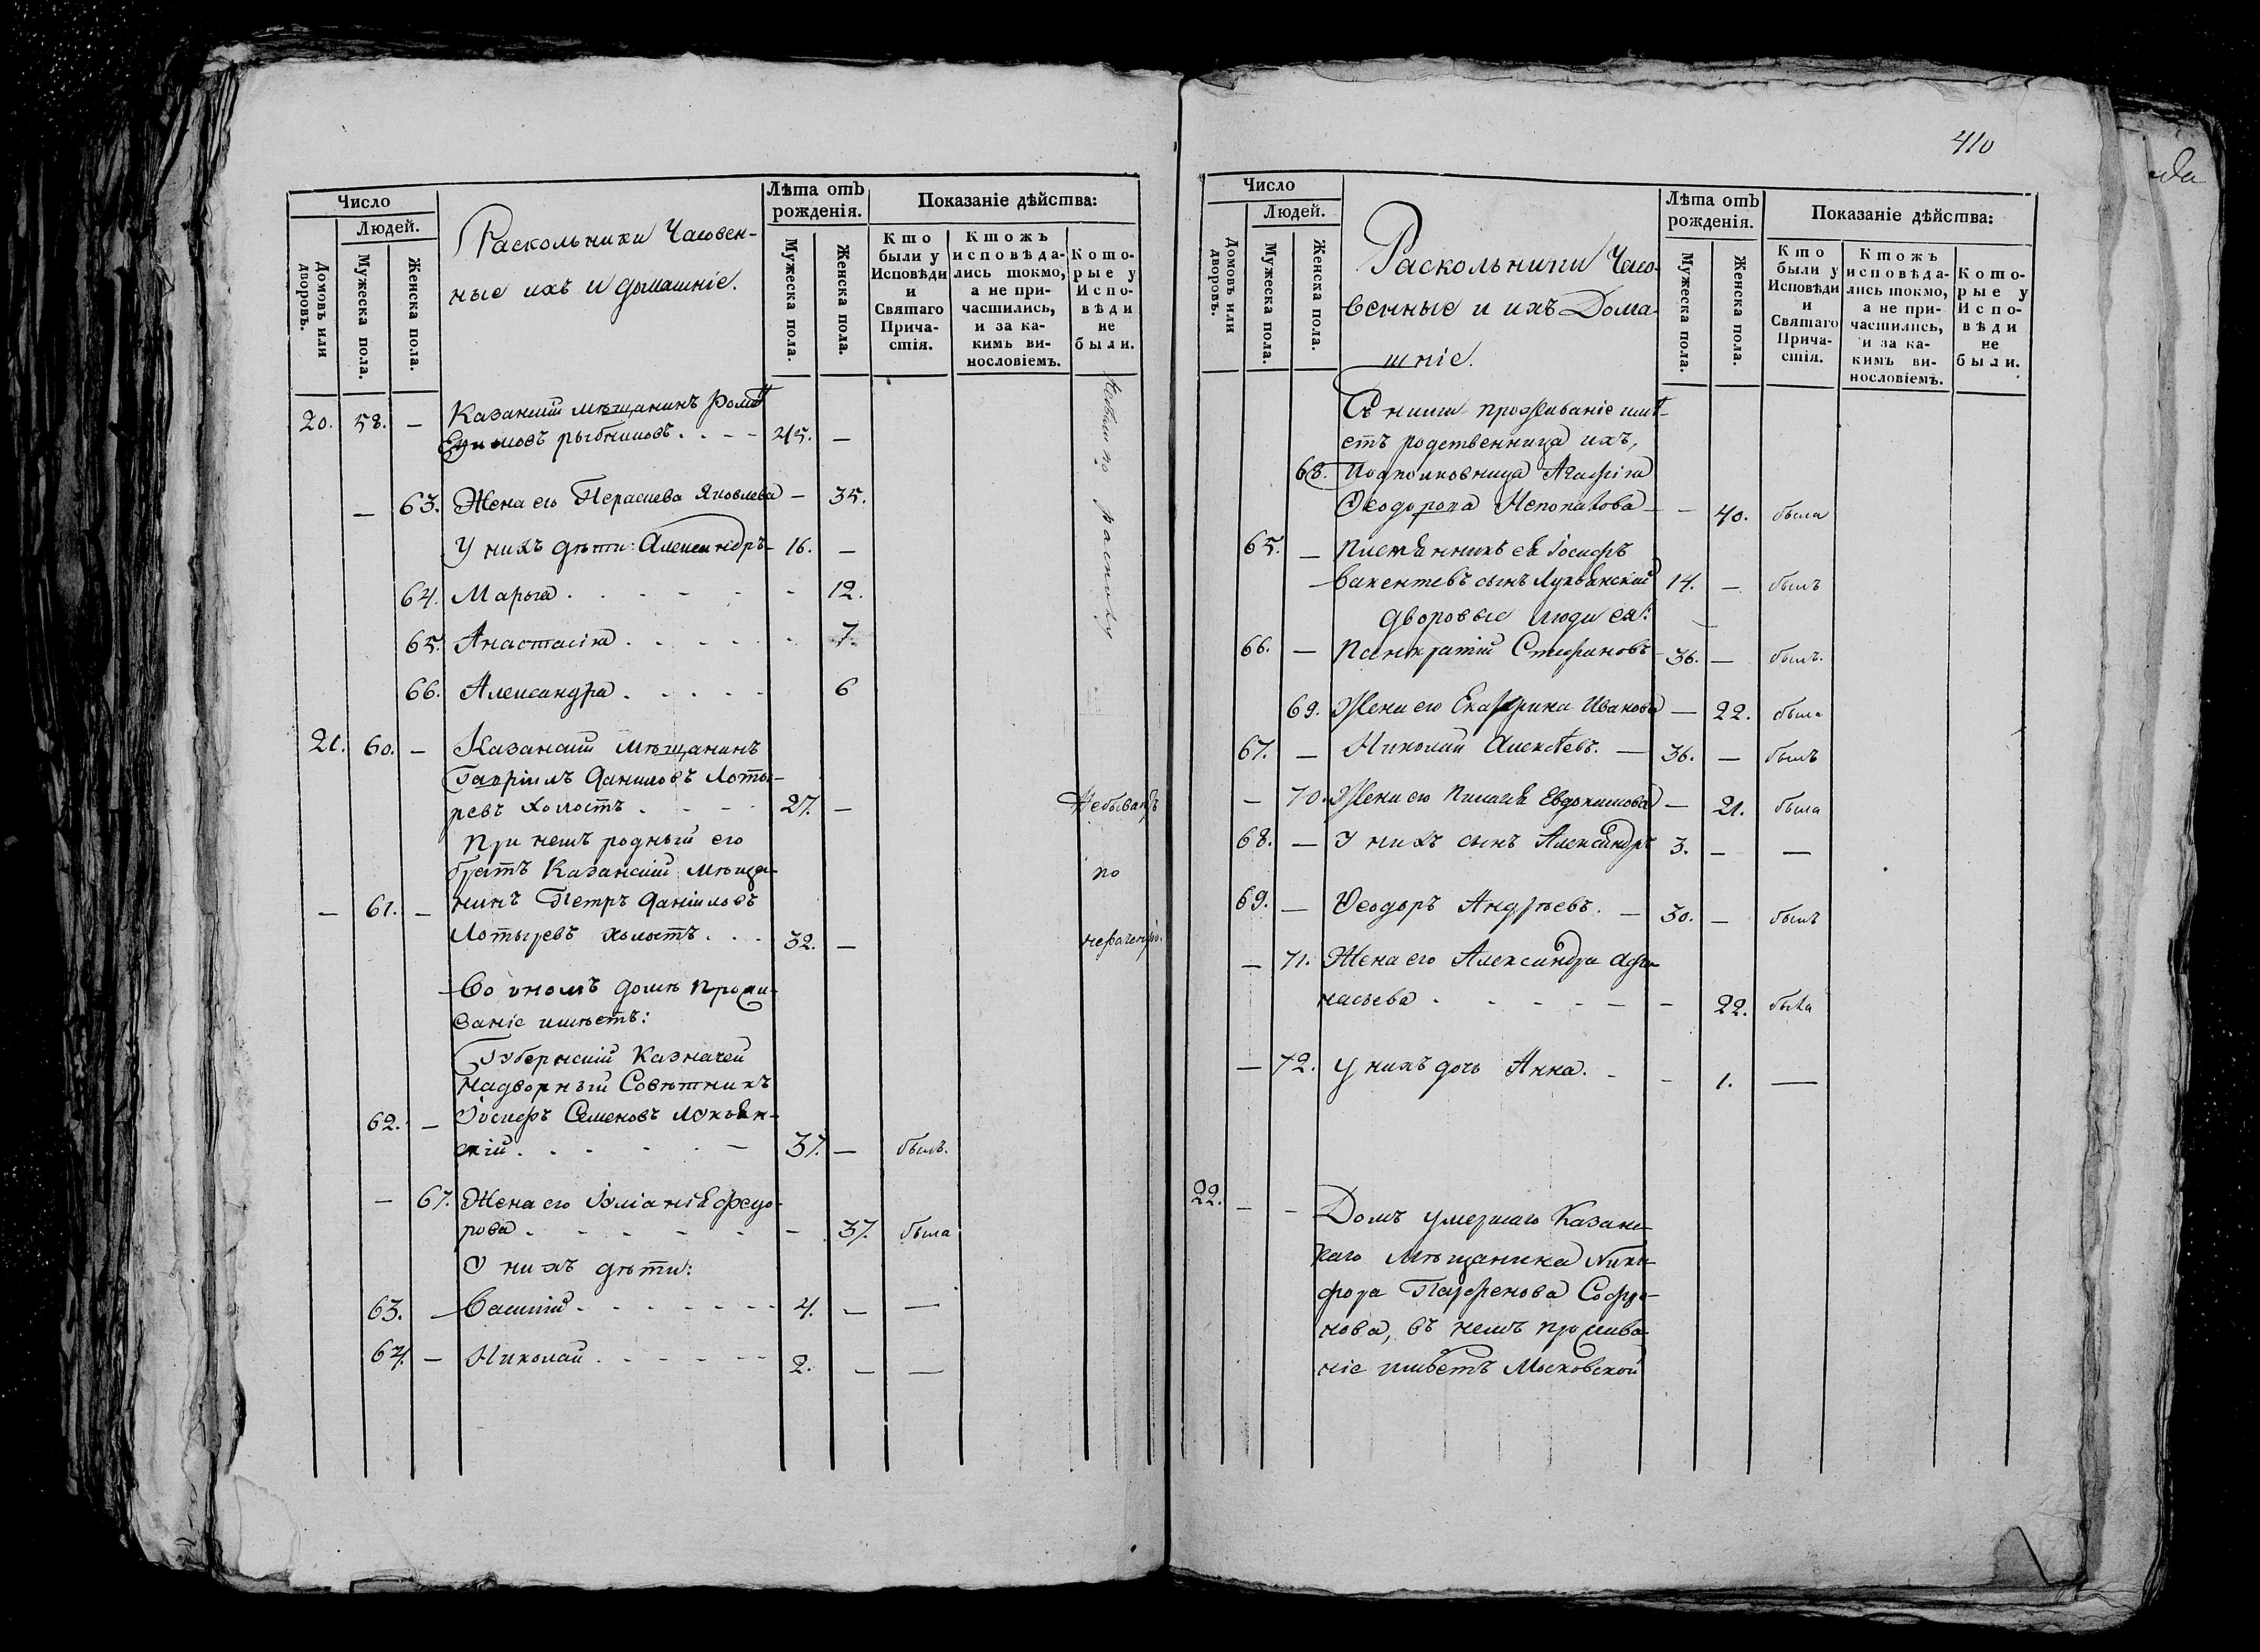 410
Число
Людей.
Домовъ или дворовъ.
Мужеска пола.
Женска пола.
Раскольники Часовен-
ные ихъ и домашніе.
Лѣта отъ
рожденія.
Мужеска пола.
Женска пола.
Показаніе дѣйства:
Кто
были у
Исповѣди
и
Святаго
Прича-
стія.
Ктожъ
исповѣда-
лись токмо,
а не при-
частились,
и за ка-
кимъ ви-
нословіемъ.
Кото-
рые у
Испо-
вѣди
не
были.
20. 58. — Казанскій мѣщанинъ
рыбниковъ . . — 45. —
— 63. Жена его Яковлева — 35.
У нихъ дѣти: Александръ — 16. —
64. Марья . . . 12.
65. Анастасія . . . 7.
66. Александра . . . 6
по расколу
21. 60. — Казанскій мѣщанинъ
Гавріилъ Даниловъ Лоты-
ревъ холостъ . . . 27. — Небывалъ
При немъ родный его
братъ Казанскій мѣща- по
— 61. — нинъ Петръ Даніиловъ
Лотыревъ холостъ . . . 32. —
Во ономъ домѣ прожи-
ваніе имѣетъ:
Губернскій Казначей
надворный Совѣтникъ
62. — Іосифъ Семеновъ Лукьян-
скій . . . — 37. — былъ.
— 67. Жена его Іуліанія Федо-
рова . . . — 37. была
У нихъ дѣти:
63. — Василій . . . 4. — —
64. — Николай . . . 2. — —
Число
Людей.
Домовъ или дворовъ.
Мужеска пола.
Женска пола.
Раскольники Часо-
венные и ихъ Дома-
шніе.
Лѣта отъ
рожденія.
Мужеска пола.
Женска пола.
Показаніе дѣйства:
Кто
были у
Исповѣди
и
Святаго
Прича-
стія.
Ктожъ
исповѣда-
лись токмо,
а не при-
частились,
и за ка-
кимъ ви-
нословіемъ.
Кото-
рые у
Испо-
вѣди
не
были.
Съ ними проживаніе имѣ-
етъ родственница ихъ,
68. Подполковница Агафія
Ѳеодорова — — 40. была
65. — Племянникъ ея Іосифъ
Викентевъ сынъ Лукьянскій 14. — былъ
дворовые люди ея:
66. — Панкратій Стефановъ 36. — былъ.
69. Жена его Екатерина Иванова — 22. была
67. — Николай Алексѣевъ. — 36. — былъ
— 70. Жена его Пелагія Евдокимова — 21. была
68. — У нихъ сынъ Александръ 3. — —
69. — Ѳеодоръ Андреевъ. — 30. — былъ
— 71. Жена его Александра Афа-
насьева . . . — 22. была
— 72. У нихъ дочь Анна. — — 1. —
22. — — Домъ умершаго Казанс-
каго мѣщанина Ники-
фора Парфенова Софро-
нова, въ немъ прожива-
ніе имѣетъ Московской